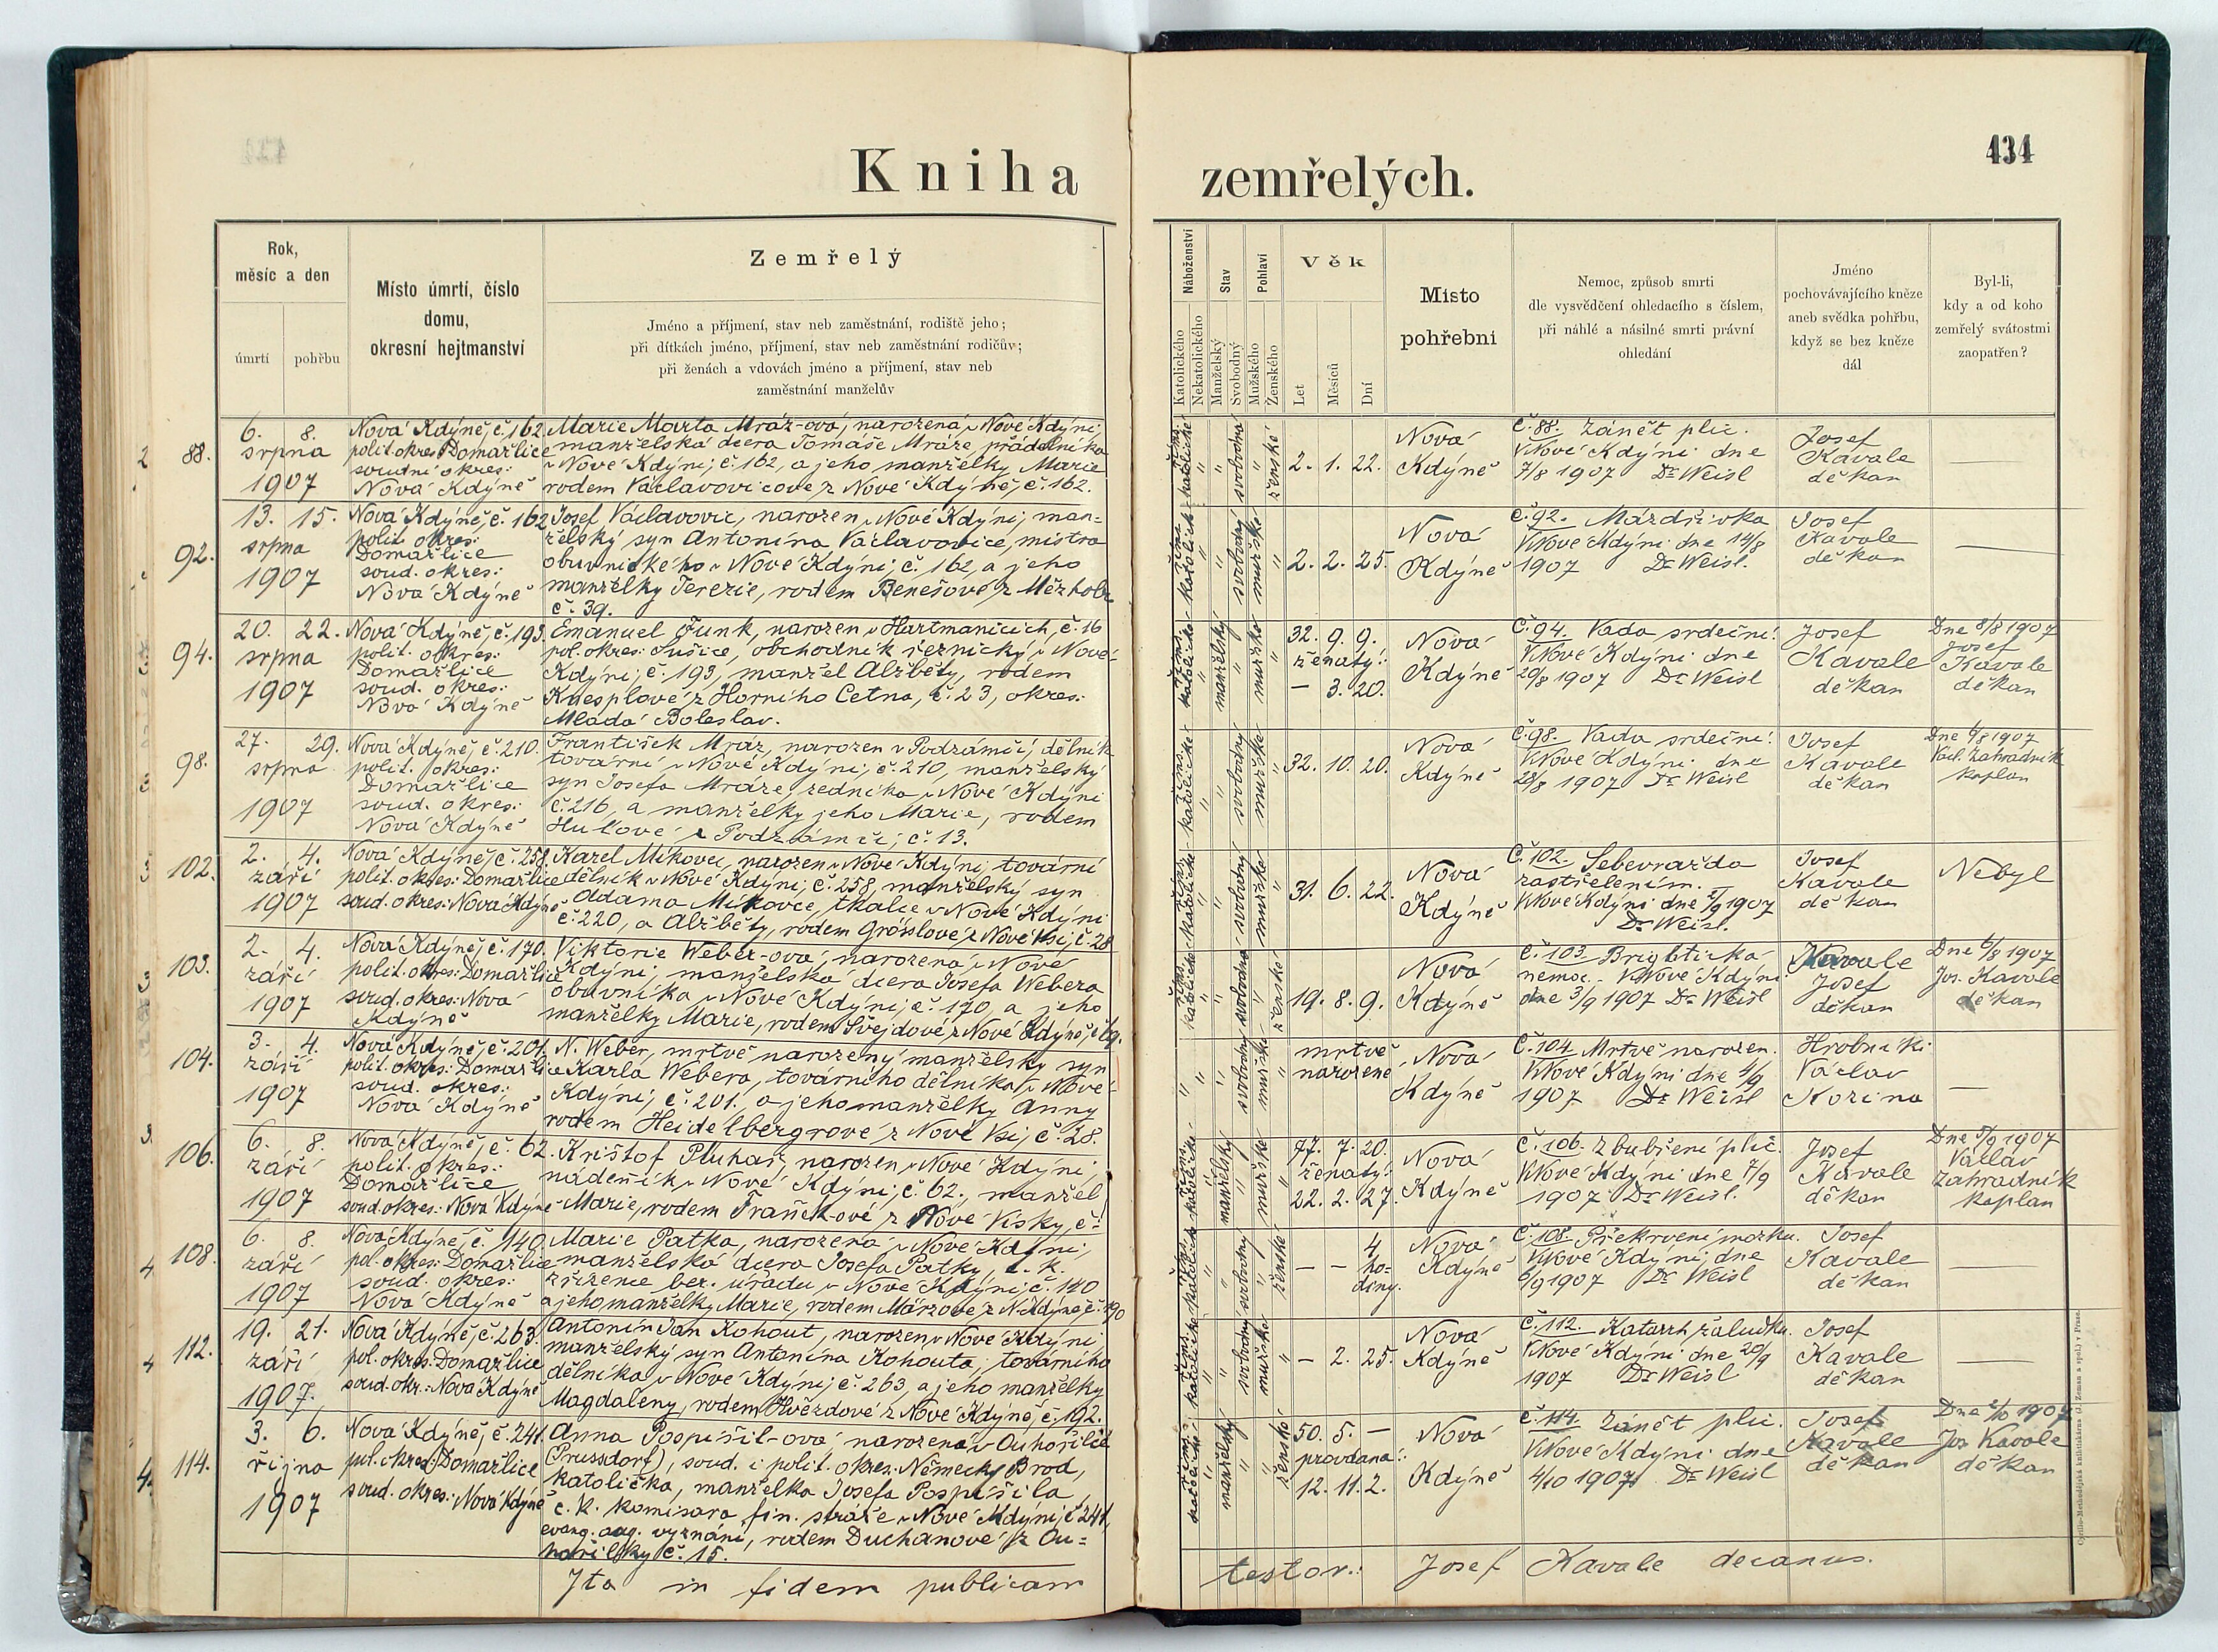 Kniha zemřelých.
434
Rok,
měsíc a den
úmrtí
pohřbu
Místo úmrtí, číslo
domu,
okresní hejtmanství
Zemřelý
Jméno a příjmení, stav neb zaměstnání, rodiště jeho;
při dítkách jméno, příjmení, stav neb zaměstnání rodičův;
při ženách a vdovách jméno a příjmení, stav neb
zaměstnání manželův
Náboženství
Katolického
Nekatolického
Stav
Manželský
Svobodný
Pohlaví
Mužského
Ženského
Věk
Let
Měsíců
Dní
Místo
pohřební
Nemoc, způsob smrti
dle vysvědčení ohledacího s číslem,
při náhlé a násilné smrti právní
ohledání
Jméno
pochovávajícího kněze
aneb svědka pohřbu,
když se bez kněze
dál
Byl-li,
kdy a od koho
zemřelý svátostmi
zaopatřen?
88.
6. 8.
srpna
1907
Nová Kdýně, č. 162
polit. okres Domažlice
soudní okres:
Nová Kdýně
Marie Marta Mráz-ová, narozená v Nové Kdýni,
manželská dcera Tomáše Mráze, přádelníka
v Nové Kdýni, č. 162, a jeho manželky Marie
rodem Václavovicové z Nové Kdýně, č. 162.
katolické
svobodná
ženské
2. 1. 22.
Nová
Kdýně
č. 88. Zánět plic.
V Nové Kdýni dne
7/8 1907 Dr Weisl
Josef
Kavale
děkan
92.
13. 15.
srpna
1907
Nová Kdýně, č. 162
polit. okres:
Domažlice
soud. okres:
Nová Kdýně
Josef Václavovic, narozen v Nové Kdýni, man-
želský syn Antonína Václavovice, mistra
obuvnického v Nové Kdýni č. 162, a jeho
manželky Terezie, rodem Benešové z Mězholez
č. 39.
svobodný
mužské
2. 2. 25.
Nová
Kdýně
č. 92. Mázdřivka
V Nové Kdýni dne 14/8
1907 Dr Weisl.
Josef
Kavale
děkan
94.
20. 22.
srpna
1907
Nová Kdýně, č. 193.
polit. okres:
Domažlice
soud. okres:
Nová Kdýně
Emanuel Funk, narozen v Hartmanicích, č. 16
pol. okres: Sušice, obchodník řeznický v Nové
Kdýni, č. 193, manžel Alžběty, rodem
Knesplové z Horního Cetna, č. 23, okres:
Mladá Boleslav.
manželský
mužské
32. 9. 9.
ženatý:
— 3. 20.
Nová
Kdýně
č. 94. Vada srdeční.
V Nové Kdýni dne
20/8 1907 Dr Weisl
Josef
Kavale
děkan
Dne 8/8 1907
Josef
Kavale
děkan
98.
27. 29.
srpna
1907
Nová Kdýně, č. 210.
polit. okres:
Domažlice
soud. okres:
Nová Kdýně
František Mráz, narozen v Podzámčí, dělník
tovární v Nové Kdýni, č. 210, manželský
syn Josefa Mráze, zedníka v Nové Kdýni
č. 216, a manželky jeho Marie, rodem
Huťové z Podzámčí, č. 13.
svobodný
mužské
32. 10. 20.
Nová
Kdýně
č. 98. Vada srdeční.
V Nové Kdýni dne
28/8 1907 Dr Weisl
Josef
Kavale
děkan
1907
Václ. Zahradník
kaplan
102.
2. 4.
září
1907
Nová Kdýně, č. 258.
polit. okres: Domažlice
soud. okres: Nová Kdýně
Karel Míkovec, narozen v Nové Kdýni, tovární
dělník v Nové Kdýni, č. 258, manželský syn
Adama Míkovce, tkalce v Nové Kdýni
č. 220, a Alžběty, rodem Grösslové z Nové Vsi, č. 28
svobodný
mužské
31. 6. 22.
Nová
Kdýně
č. 102. Sebevražda
zastřelením.
V Nové Kdýni dne 2/9 1907
Dr Weisl.
Josef
Kavale
děkan
Nebyl
103.
2. 4.
září
1907
Nová Kdýně, č. 170.
polit. okres: Domažlice
soud. okres: Nová
Kdýně
Viktorie Weber-ová, narozená v Nové
Kdýni, manželská dcera Josefa Webera
obuvníka v Nové Kdýni, č. 170, a jeho
manželky Marie, rodem Švejdové z Nové Kdýně, č. 19.
svobodná
ženské
19. 8. 9.
Nová
Kdýně
č. 103. Brightická
nemoc. V Nové Kdýni
dne 3/9 1907 Dr Weisl
Kavale
Josef
děkan
1907
Jos. Kavale
děkan
104.
3. 4.
září
1907
Nová Kdýně, č. 201.
polit. okres: Domažlice
soud. okres:
Nová Kdýně
N. Weber, mrtvě narozený manželský syn
Karla Webera, továrního dělníka, v Nové
Kdýni, č. 201. a jeho manželky Anny
rodem Heidelbergrové z Nové Vsi, č. 28.
svobodný
mužské
mrtvě
narozené
Nová
Kdýně
č. 104. Mrtvě narozen.
V Nové Kdýni dne 4/9
1907 Dr Weisl
Hrobník:
Václav
Kořina
106.
6. 8.
září
1907
Nová Kdýně, č. 62.
polit. okres:
Domažlice
soud. okres: Nová Kdýně
Krištof Pluhař, narozen v Nové Kdýni,
nádeník v Nové Kdýni, č. 62., manžel
Marie, rodem Franěk-ové z Nové Vísky, č.
manželský
mužské
77. 7. 20.
ženatý:
22. 2. 27.
Nová
Kdýně
č. 106. Zbubření plic.
V Nové Kdýni dne 7/9
1907 Dr Weisl.
Josef
Kavale
děkan
Dne 5/9 1907
Václav
Zahradník
kaplan
108.
6. 8.
září
1907
Nová Kdýně, č. 140
pol. okres: Domažlice
soud. okres:
Nová Kdýně
Marie Patka, narozená v Nové Kdýni,
manželská dcera Josefa Patky, c. k.
zřízence ber. úřadu v Nové Kdýni č. 140
a jeho manželky Marie, rodem Márzové z N. Kdýně, č. 190
svobodný
ženské
— — 4
ho-
diny.
Nová
Kdýně
č. 108. Překrvení mozku.
V Nové Kdýni, dne
6/9 1907 Dr Weisl
Josef
Kavale
děkan
112.
19. 21.
září
1907.
Nová Kdýně, č. 263.
pol. okres: Domažlice
soud. okr.: Nová Kdýně
Antonín Jan Kohout, narozen v Nové Kdýni
manželský syn Antonína Kohouta, továrního
dělníka v Nové Kdýni, č. 263, a jeho manželky
Magdaleny, rodem Hvězdové z Nové Kdýně, č. 192.
svobodný
mužské
— 2. 25.
Nová
Kdýně
č. 112. Katarrh žaludku.
V Nové Kdýni dne 20/9
1907 Dr Weisl
Josef
Kavale
děkan
114.
3. 6.
října
1907
Nová Kdýně, č. 241.
pol. okres: Domažlice
soud. okres: Nová Kdýně
Anna Pospíšil-ová narozená v Ouhořilce
(Prussdorf), soud. i polit. okres: Německý Brod,
katolička, manželka Josefa Pospíšila,
c. k. komisara fin. stráže v Nové Kdýni, č. 241,
evang. aug. vyznání, rodem Duchanové z Ou-
hořilky č. 15.
manželský
ženské
50. 5. —
provdaná:
12. 11. 2.
Nová
Kdýně
č. 114. Zánět plic.
V Nové Kdýni dne
4/10 1907 Dr Weisl
Josef
Kavale
děkan
Dne 2/10 1907
Jos Kavale
děkan
Ita in fidem publicam
testor.: Josef Kavale decanus.